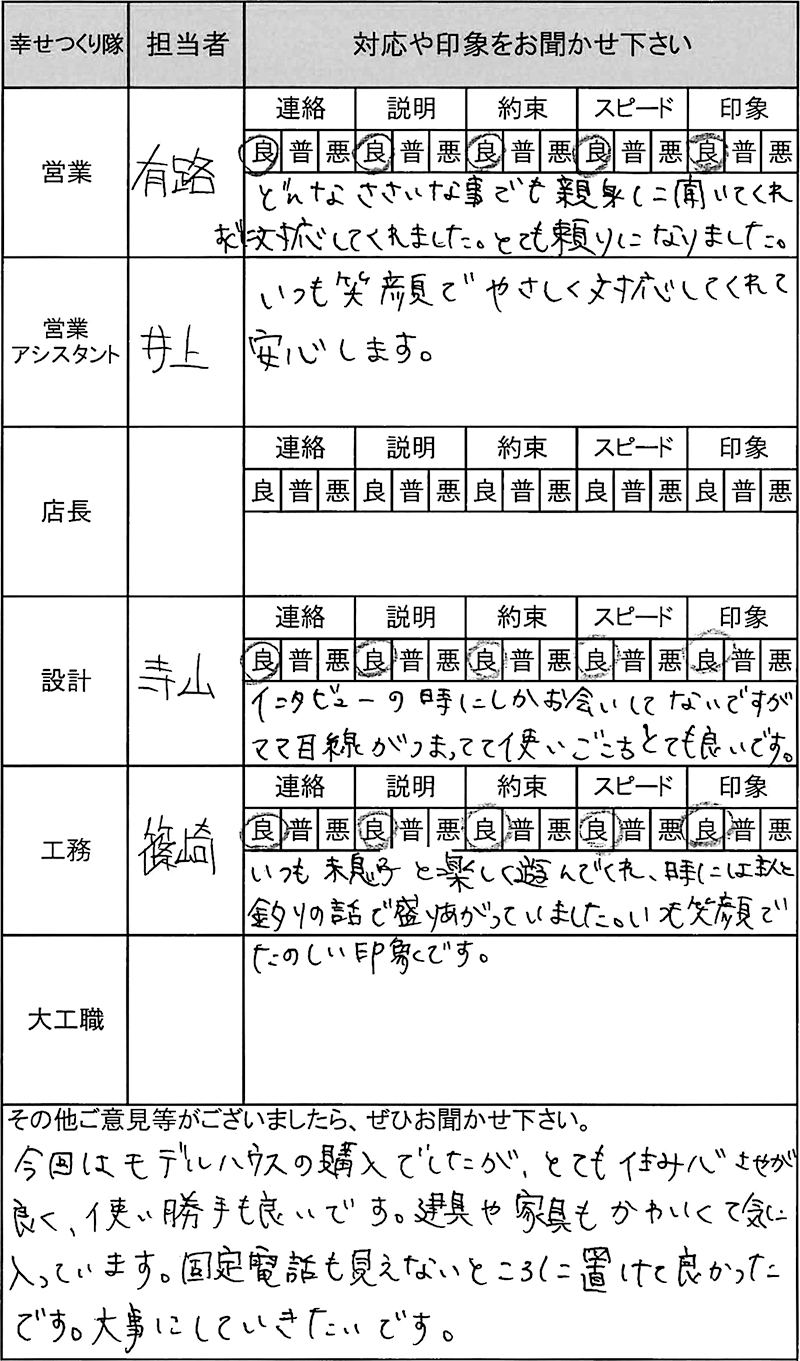 幸せつくり隊 担当者 対応や印象をお聞かせ下さい
連絡 説明 約束 スピード 印象
営業 有路 良 普 悪 良 普 悪 良 普 悪 良 普 悪 良 普 悪
どんなささいな事でも親身に聞いてくれ
対応してくれました。とても頼りになりました。
営業
アシスタント 井上 いつも笑顔でやさしく対応してくれて
安心します。
連絡 説明 約束 スピード 印象
店長 良 普 悪 良 普 悪 良 普 悪 良 普 悪 良 普 悪
連絡 説明 約束 スピード 印象
設計 寺山 良 普 悪 良 普 悪 良 普 悪 良 普 悪 良 普 悪
インタビューの時にしかお会いしてないですが
ママ目線がつまってて使いごこちとても良いです。
連絡 説明 約束 スピード 印象
工務 篠崎 良 普 悪 良 普 悪 良 普 悪 良 普 悪 良 普 悪
いつも息子と楽しく遊んでくれ、時には主人と
釣りの話で盛りあがっていました。いつも笑顔で
たのしい印象です。
大工職
その他ご意見等がございましたら、ぜひお聞かせ下さい。
今回はモデルハウスの購入でしたが、とても住み心地が
良く、使い勝手も良いです。建具や家具もかわいくて気に
入っています。固定電話も見えないところに置けて良かった
です。大事にしていきたいです。